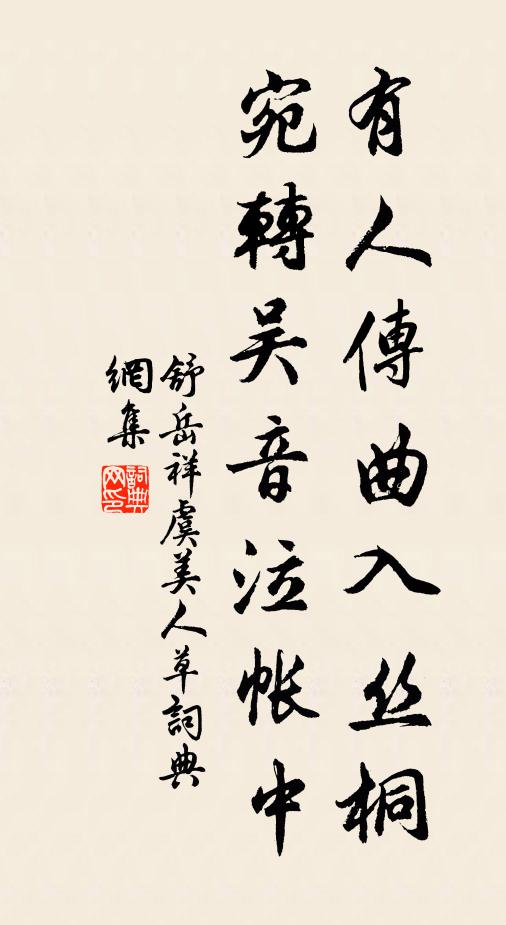 有人傳曲入丝桐
宛轉吴音泣帐中
舒岳祥虞美人草詞典
網集
詞典网印